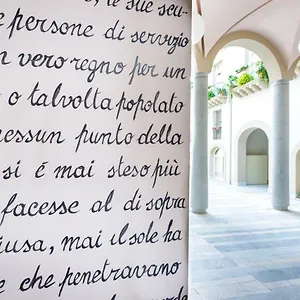 le sue scu
e persone di servizio
n vero regno per un
o talvolta popolato
nessun punto della
si é mai steso più
facesse al di sopra
iusa, mai il sole ha
e che penetravano